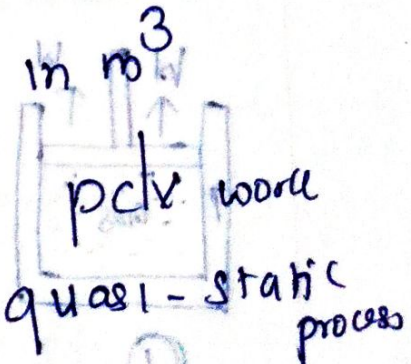 in m³
pdv work
quasi-static
process